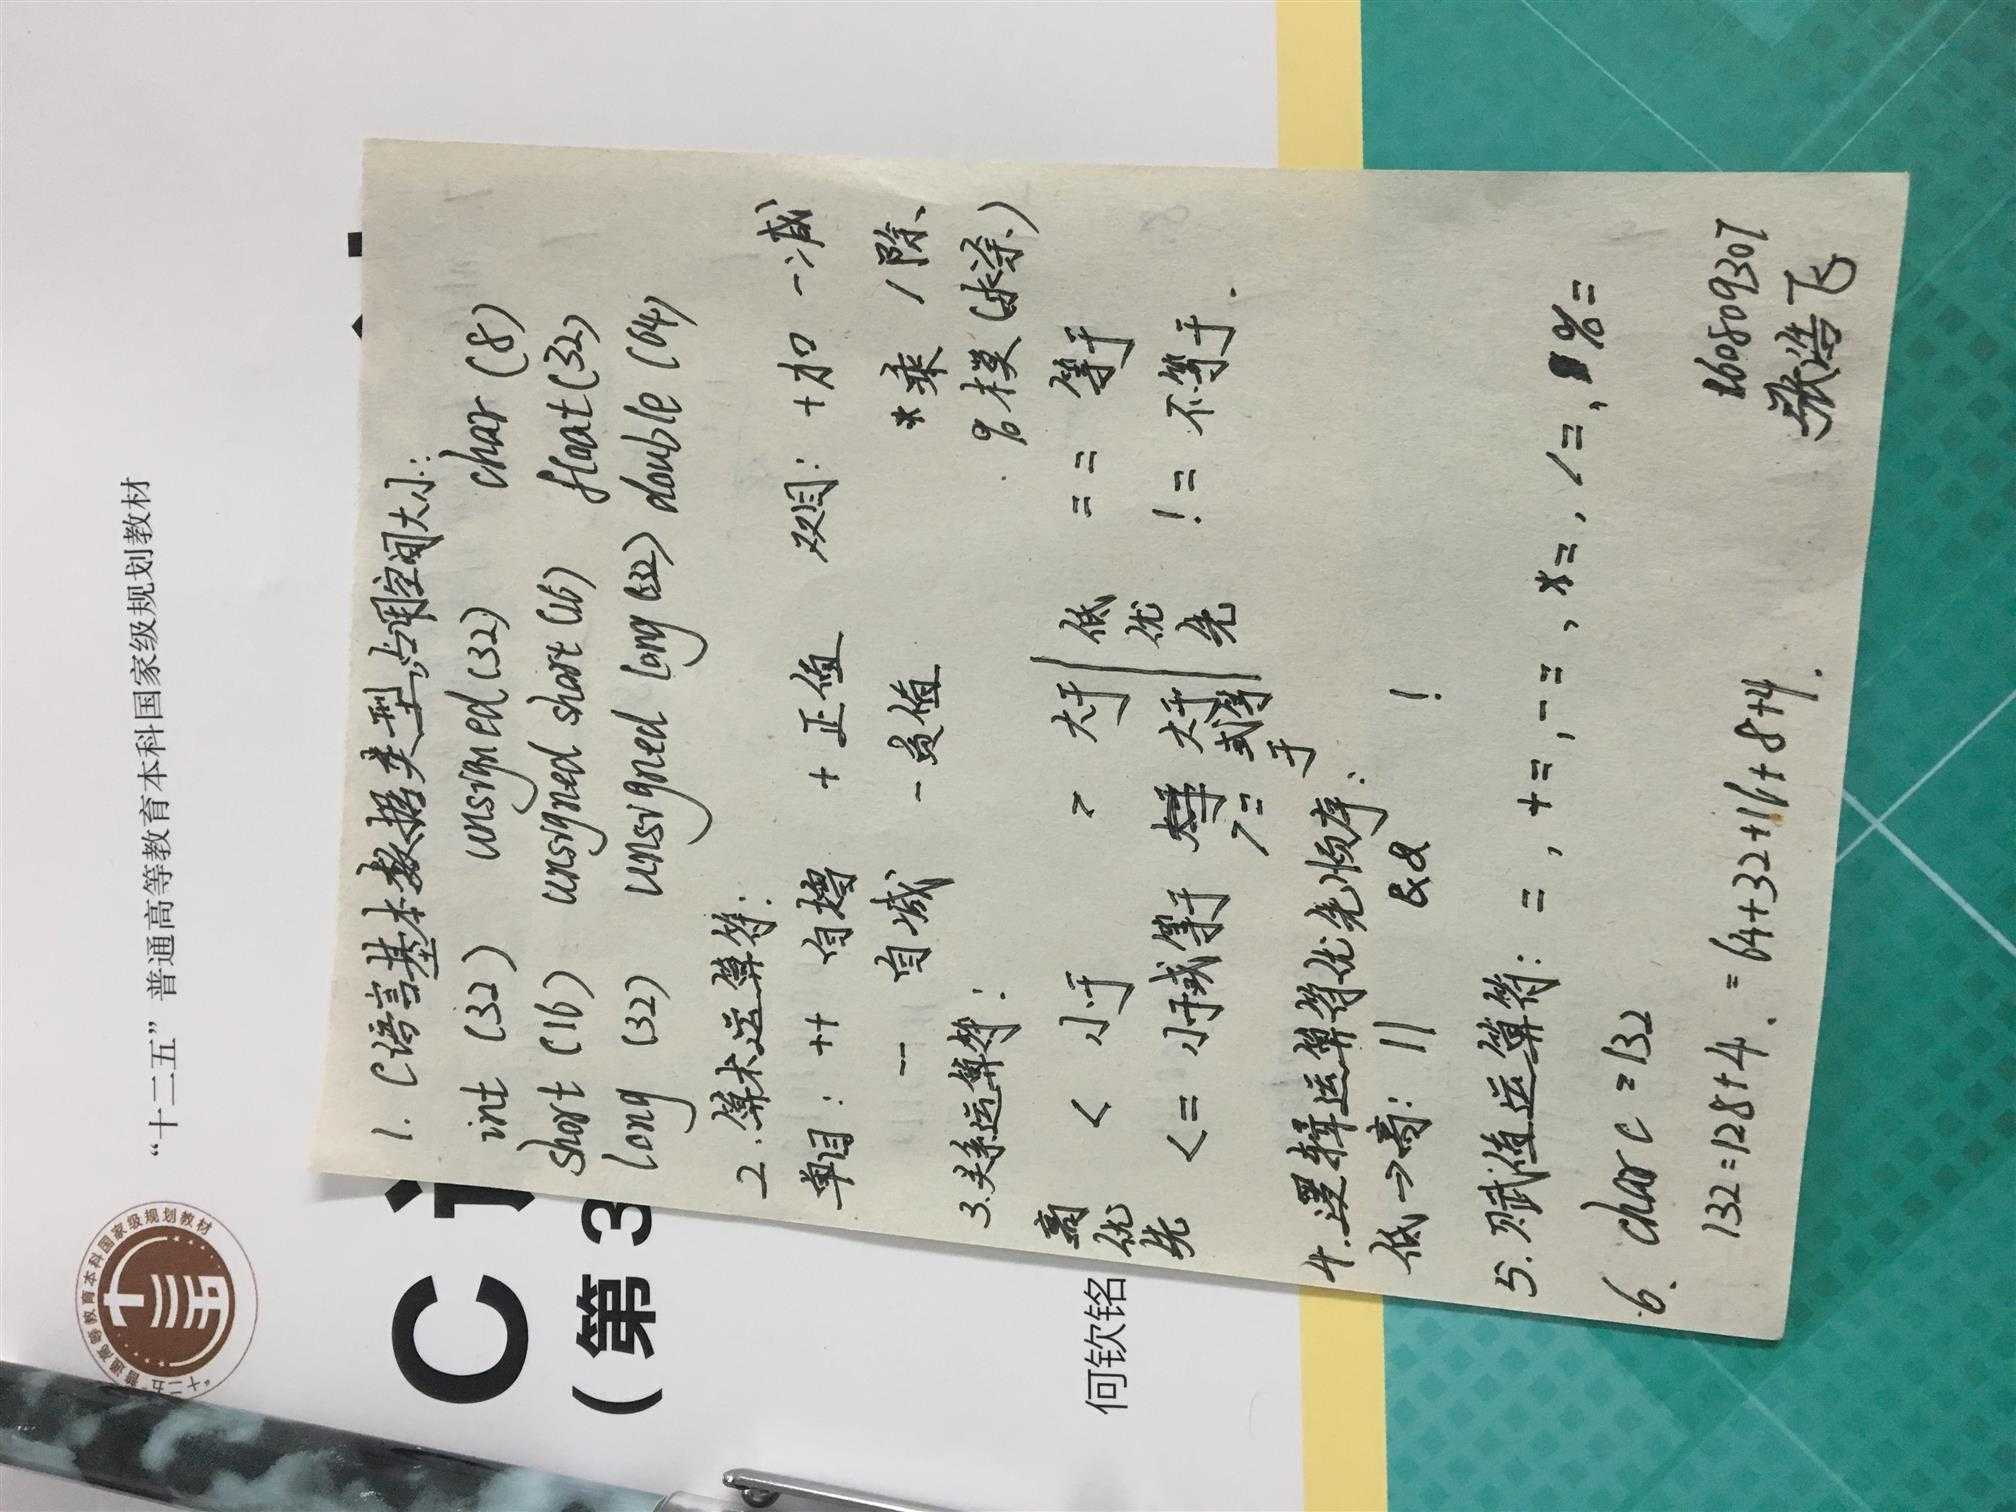 “十二五”普通高等教育本科国家级规划教材
C
(第3
何钦铭
1. C语言基本数据类型,占用空间大小:
int (32) unsigned (32) char (8)
short (16) unsigned short (16) float (32)
long (32) unsigned long (32) double (64)
2. 算术运算符:
单目: ++ 自增 + 正值 双目: +加 -减
-- 自减 - 负值 *乘 /除
%模(求余)
3. 关系运算符:
高优先 < 小于 > 大于 低优先 == 等于
<= 小于或等于 >= 大于或等于 != 不等于.
4. 逻辑运算符优先顺序:
低→高: || && !
5. 赋值运算符: =, +=, -=, *=, /=, %=
6. char c = 132
132=128+4. = 64+32+16+8+4.
16080930
张浩飞